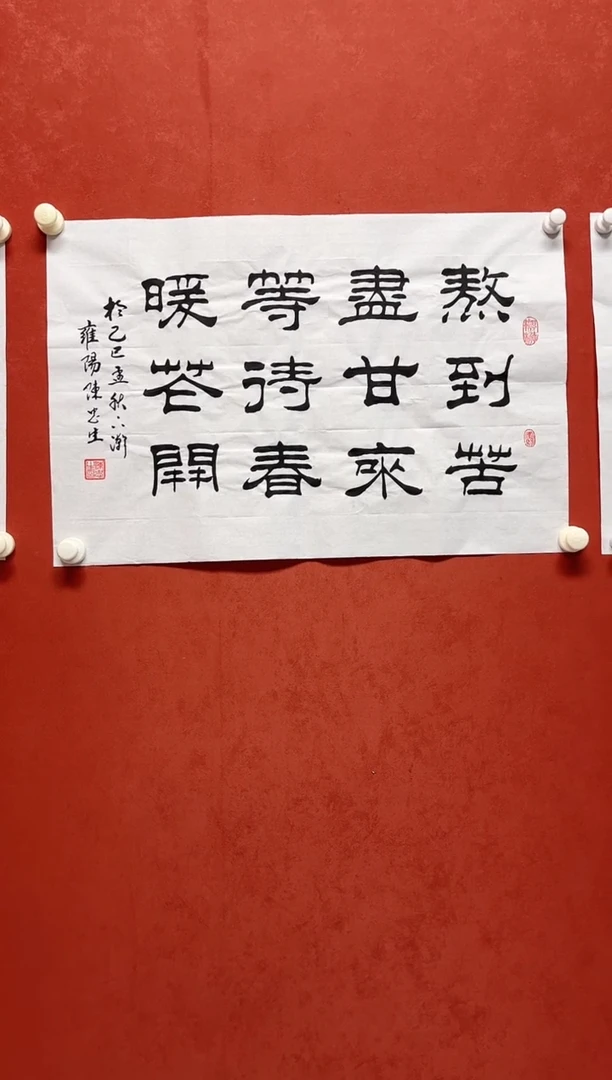 熬到苦
盡甘來
等待春
暖芲開
於乙巳孟秋下澣
雍陽陳忠生